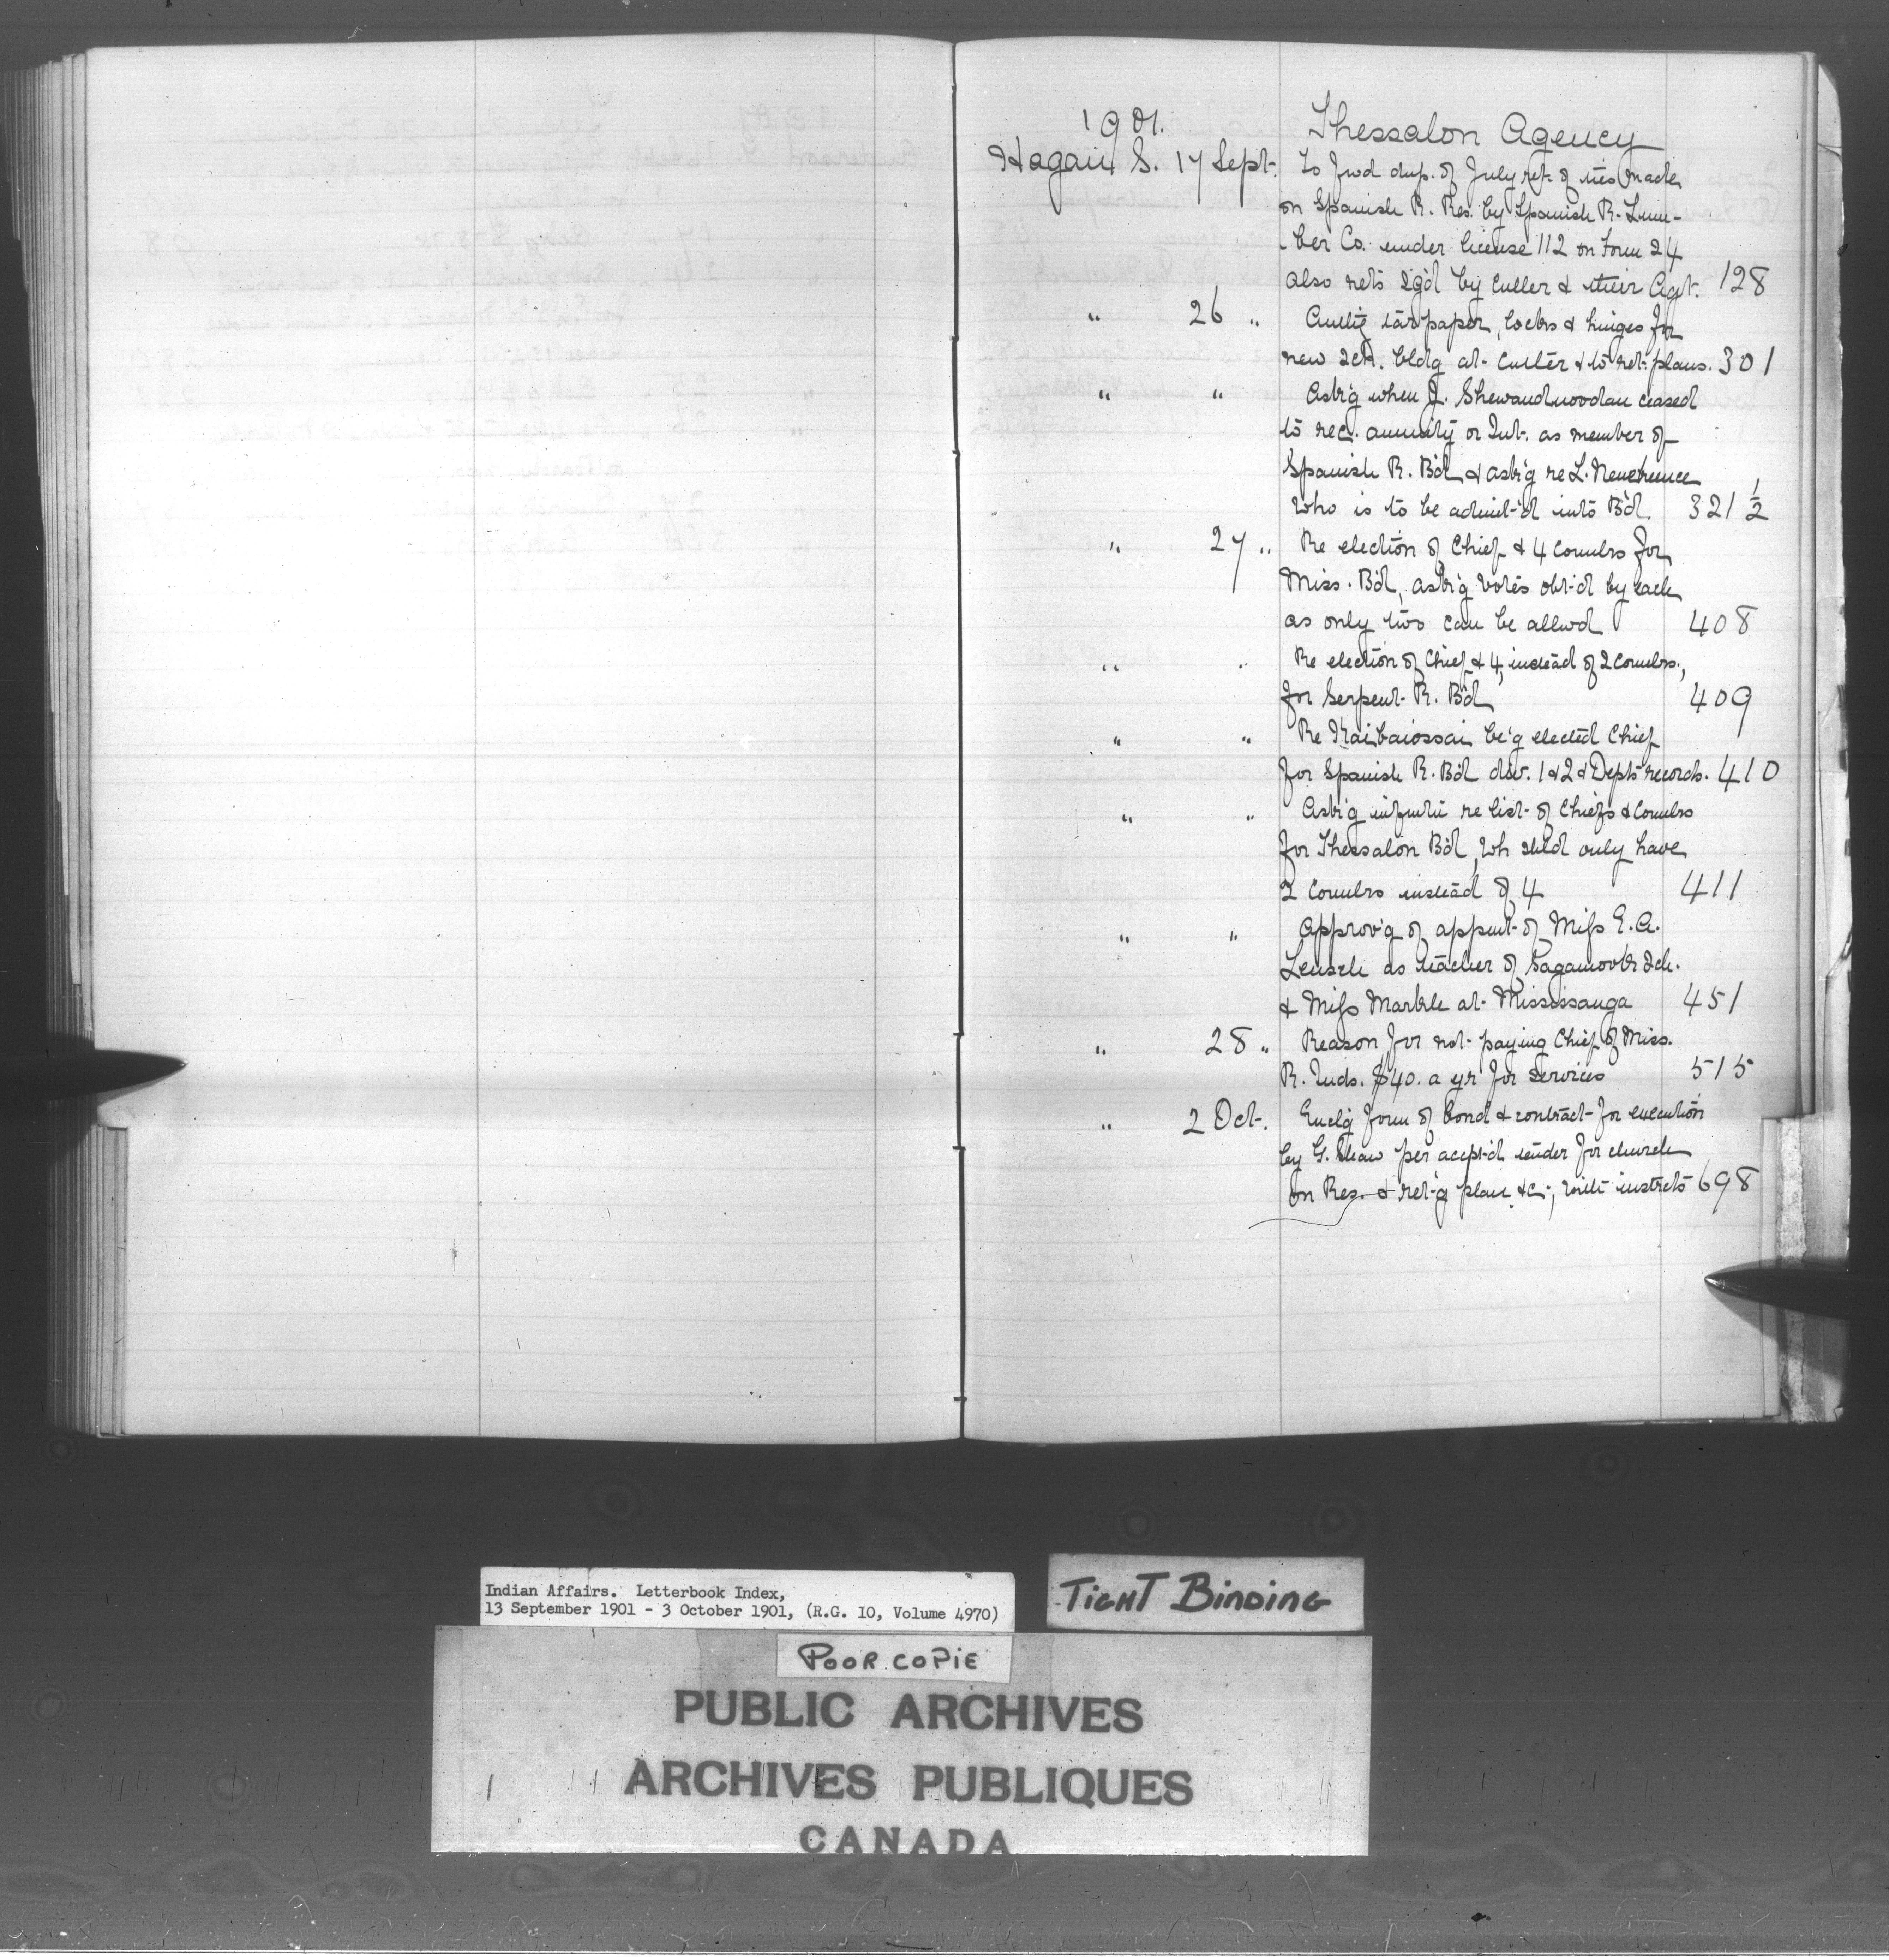 1901. Thessalon Agency
Hagan S. 17 Sept. To fwd dup. of July ret. of ties made
on Spanish R. Res. by Spanish R. Lum-
-ber Co. under license 112 on Form 24
also rets sg'd by Culler & their Agt. 128
" 26 " tar paper, locks & hinges for
new sch. bldg at Cutler & to ret. plans. 301
" " Ask'g when J. Shewandnoodau ceased
to rec. annuity or Int. as member of
Spanish R. B'd & ask'g re L.
who is to be admit'd into B'd. 321 1/2
" 27 " Re election of Chief & 4 Counlrs for
Miss. B'd, ask'g votes obt'd by each
as only two can be allwd 408
" " Re election of Chief & 4, instead of 2 Counlrs.,
for Serpent R. B'd 409
" " Re Kaibaiossai be'g elected Chief
for Spanish R. B'd div. 1 & 2 & Dept's records. 410
" " Ask'g infmtn re list of Chiefs & Counlrs
for Thessalon B'd, wh shld only have
2 Counlrs instead of 4 411
" " Approv'g of appmt of Miss E. A.
as teacher of Sagamook Sch.
& Miss Markle at Mississauga 451
" 28 " Reason for not paying Chief of Miss.
R. Inds. $40. a yr for services 515
" 2 Oct. Encl'g form of bond & contract for execution
by G. Shaw per accpt'd tender for church
on Res. & ret'g plan &c., with instrcts 698
Indian Affairs. Letterbook Index,
13 September 1901 - 3 October 1901, (R.G. 10, Volume 4970)
TIGHT BINDING
POOR COPIE
PUBLIC ARCHIVES
ARCHIVES PUBLIQUES
CANADA